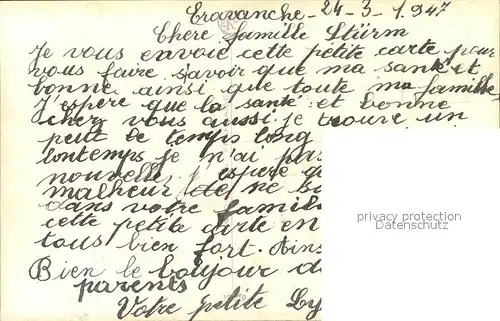 Eravanche - 24-3-1947
Chere famille Stürm
Je vous envoie cette petite carte pour
vous faire savoir que ma santé et
bonne ainsi que toute ma famille
J'espere que la santé et bonne
chez vous aussi je trouve un
peut le temps long
lontemps je n'ai pas
nouvelle j'espere
malheur de ne
dans votre famil
cette petite carte en
tous bien fort. Ains
Bien le boujour d
parents
Votre petite Ly
privacy protection
Datenschutz